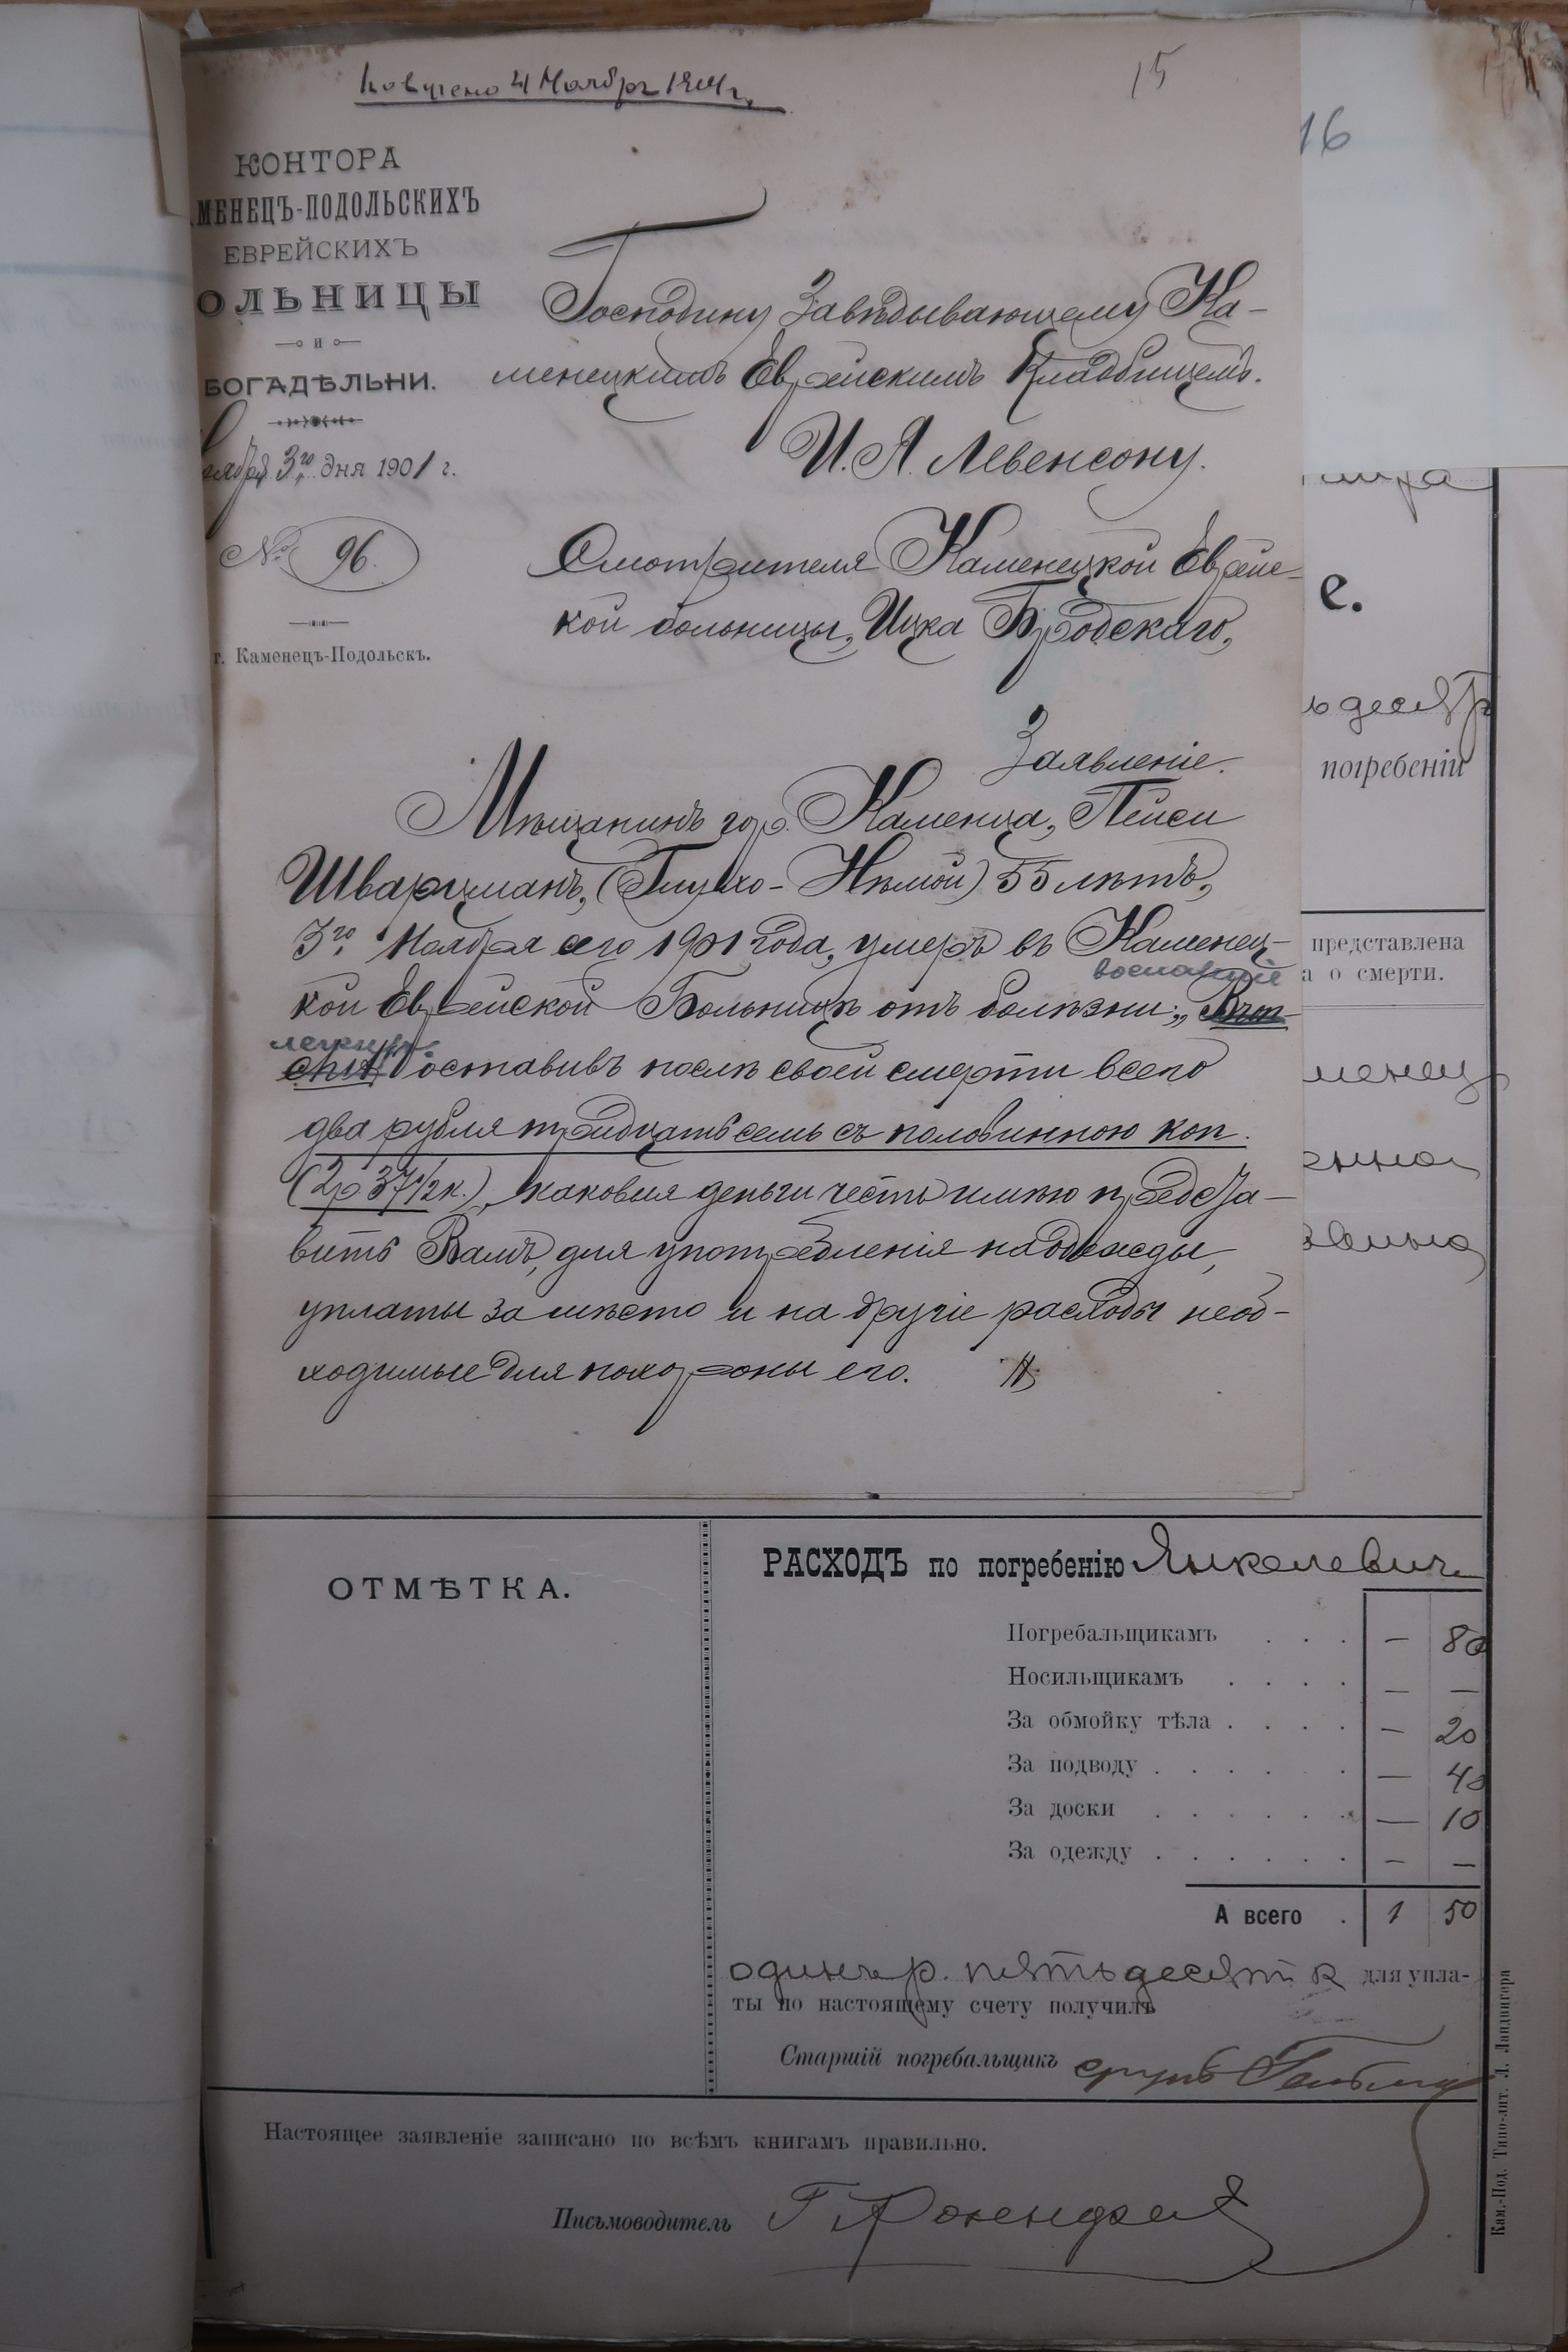 Получено 4 Ноября 1901 г.
15
16
КОНТОРА
МЕНЕЦЪ-ПОДОЛЬСКИХЪ
ЕВРЕЙСКИХЪ
ОЛЬНИЦЫ
и
БОГАДѢЛЬНИ.
оября 3го дня 1901 г.
№ 96.
г. Каменецъ-Подольскъ.
Господину Завѣдывающему Ка-
менецкимъ Еврейскимъ Кладбищемъ.
И. Я. Левенсону.
Смотрителя Каменецкой Еврейс-
кой больницы, Ицка Бродскаго,
Заявленіе.
Мѣщанинъ гор. Каменца, Пейси
Шварцманъ, (Глухо-Нѣмой) 55 лѣтъ,
3го Ноября сего 1901 года, умеръ въ Каменец-
воспаленіе
кой Еврейской Больницѣ отъ болѣзни: „
легкихъ“
оставивъ послѣ своей смерти всего
два рубля тридцать семь съ половинною коп.
(2р 37 1/2 к.), каковыя деньги честь имѣю предста-
вить Вамъ, для употребленія на одежды,
уплаты за мѣсто и на другіе расходы необ-
ходимые для похороны его.
е.
ь десятъ
погребеніи
представлена
а о смерти.
менец
ОТМѢТКА.
РАСХОДЪ по погребенію Янкелевич
Погребальщикамъ . . . — 80
Носильщикамъ . . . . — —
За обмойку тѣла . . . . — 20
За подводу . . . . . . — 40
За доски . . . . . . — 10
За одежду . . . . . . — —
А всего . 1 50
одинъ р. пятьдесятъ к для упла-
ты по настоящему счету получилъ
Старшій погребальщикъ
Настоящее заявленіе записано по всѣмъ книгамъ правильно.
Письмоводитель
Кам.-Под. Типо-лит. Л. Ландвигера